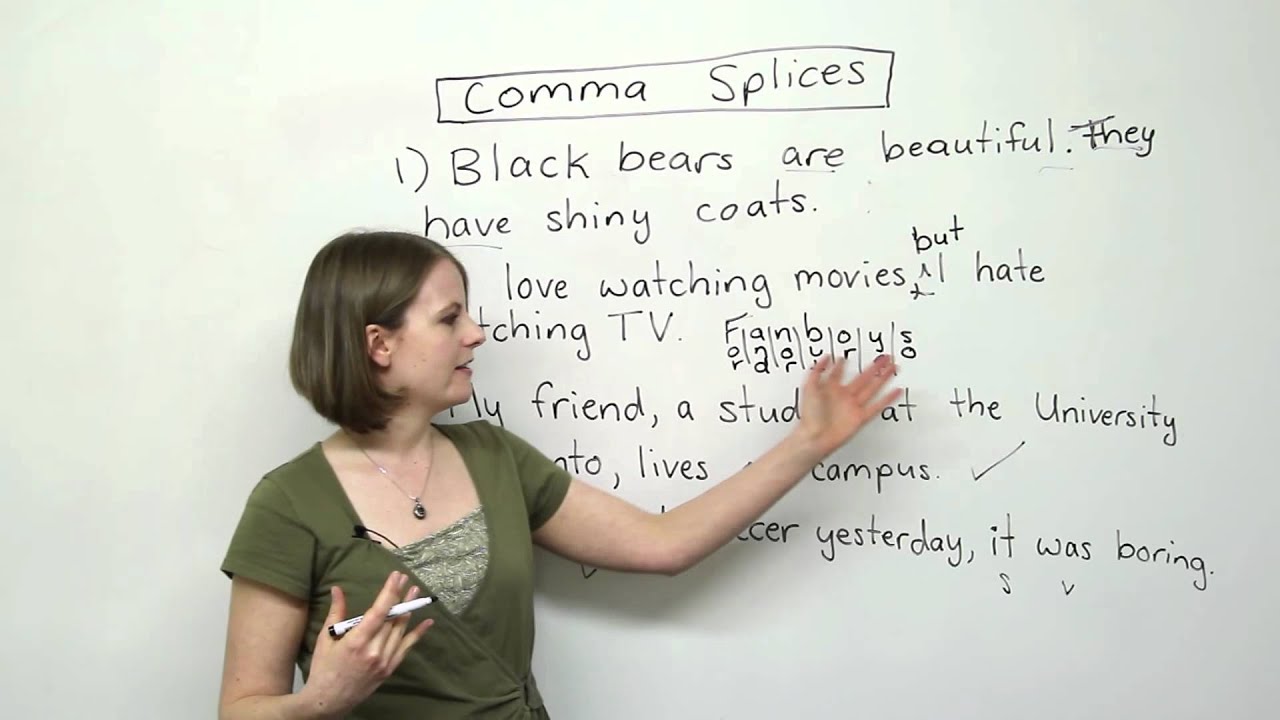 Comma Splices
1) Black bears are beautiful. They
have shiny coats.
but
love watching movies, I hate
tching TV. F a n b o y s
o n o u r e o
r d r t
My friend, a stud at the University
nto, lives campus. ✓
ccer yesterday, it was boring.
s v